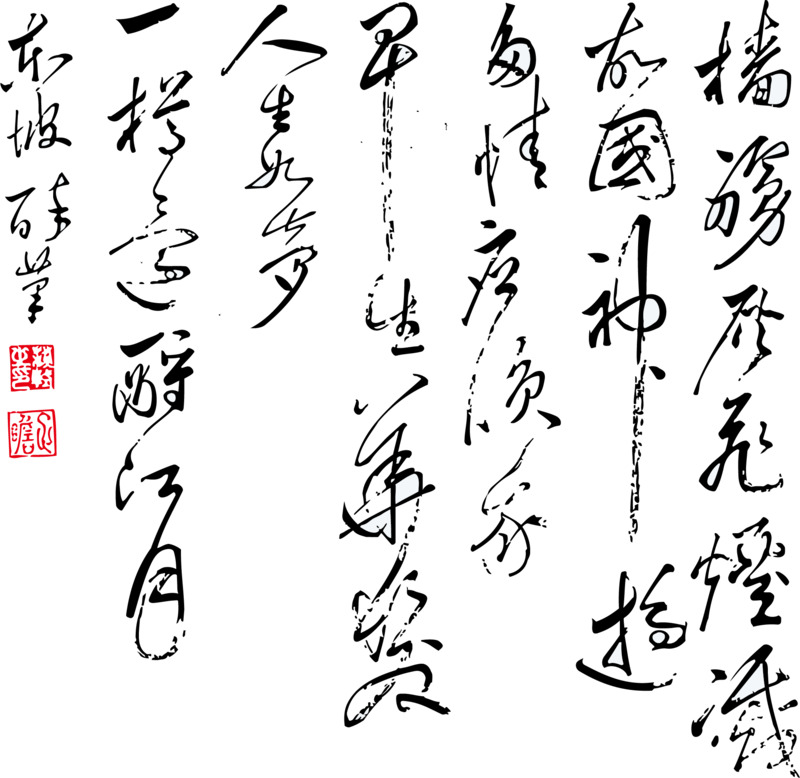 檣艣灰飛煙滅
故國神遊
多情應我
早生華髮
人生如夢
一樽還酹江月
東坡醉筆
子瞻